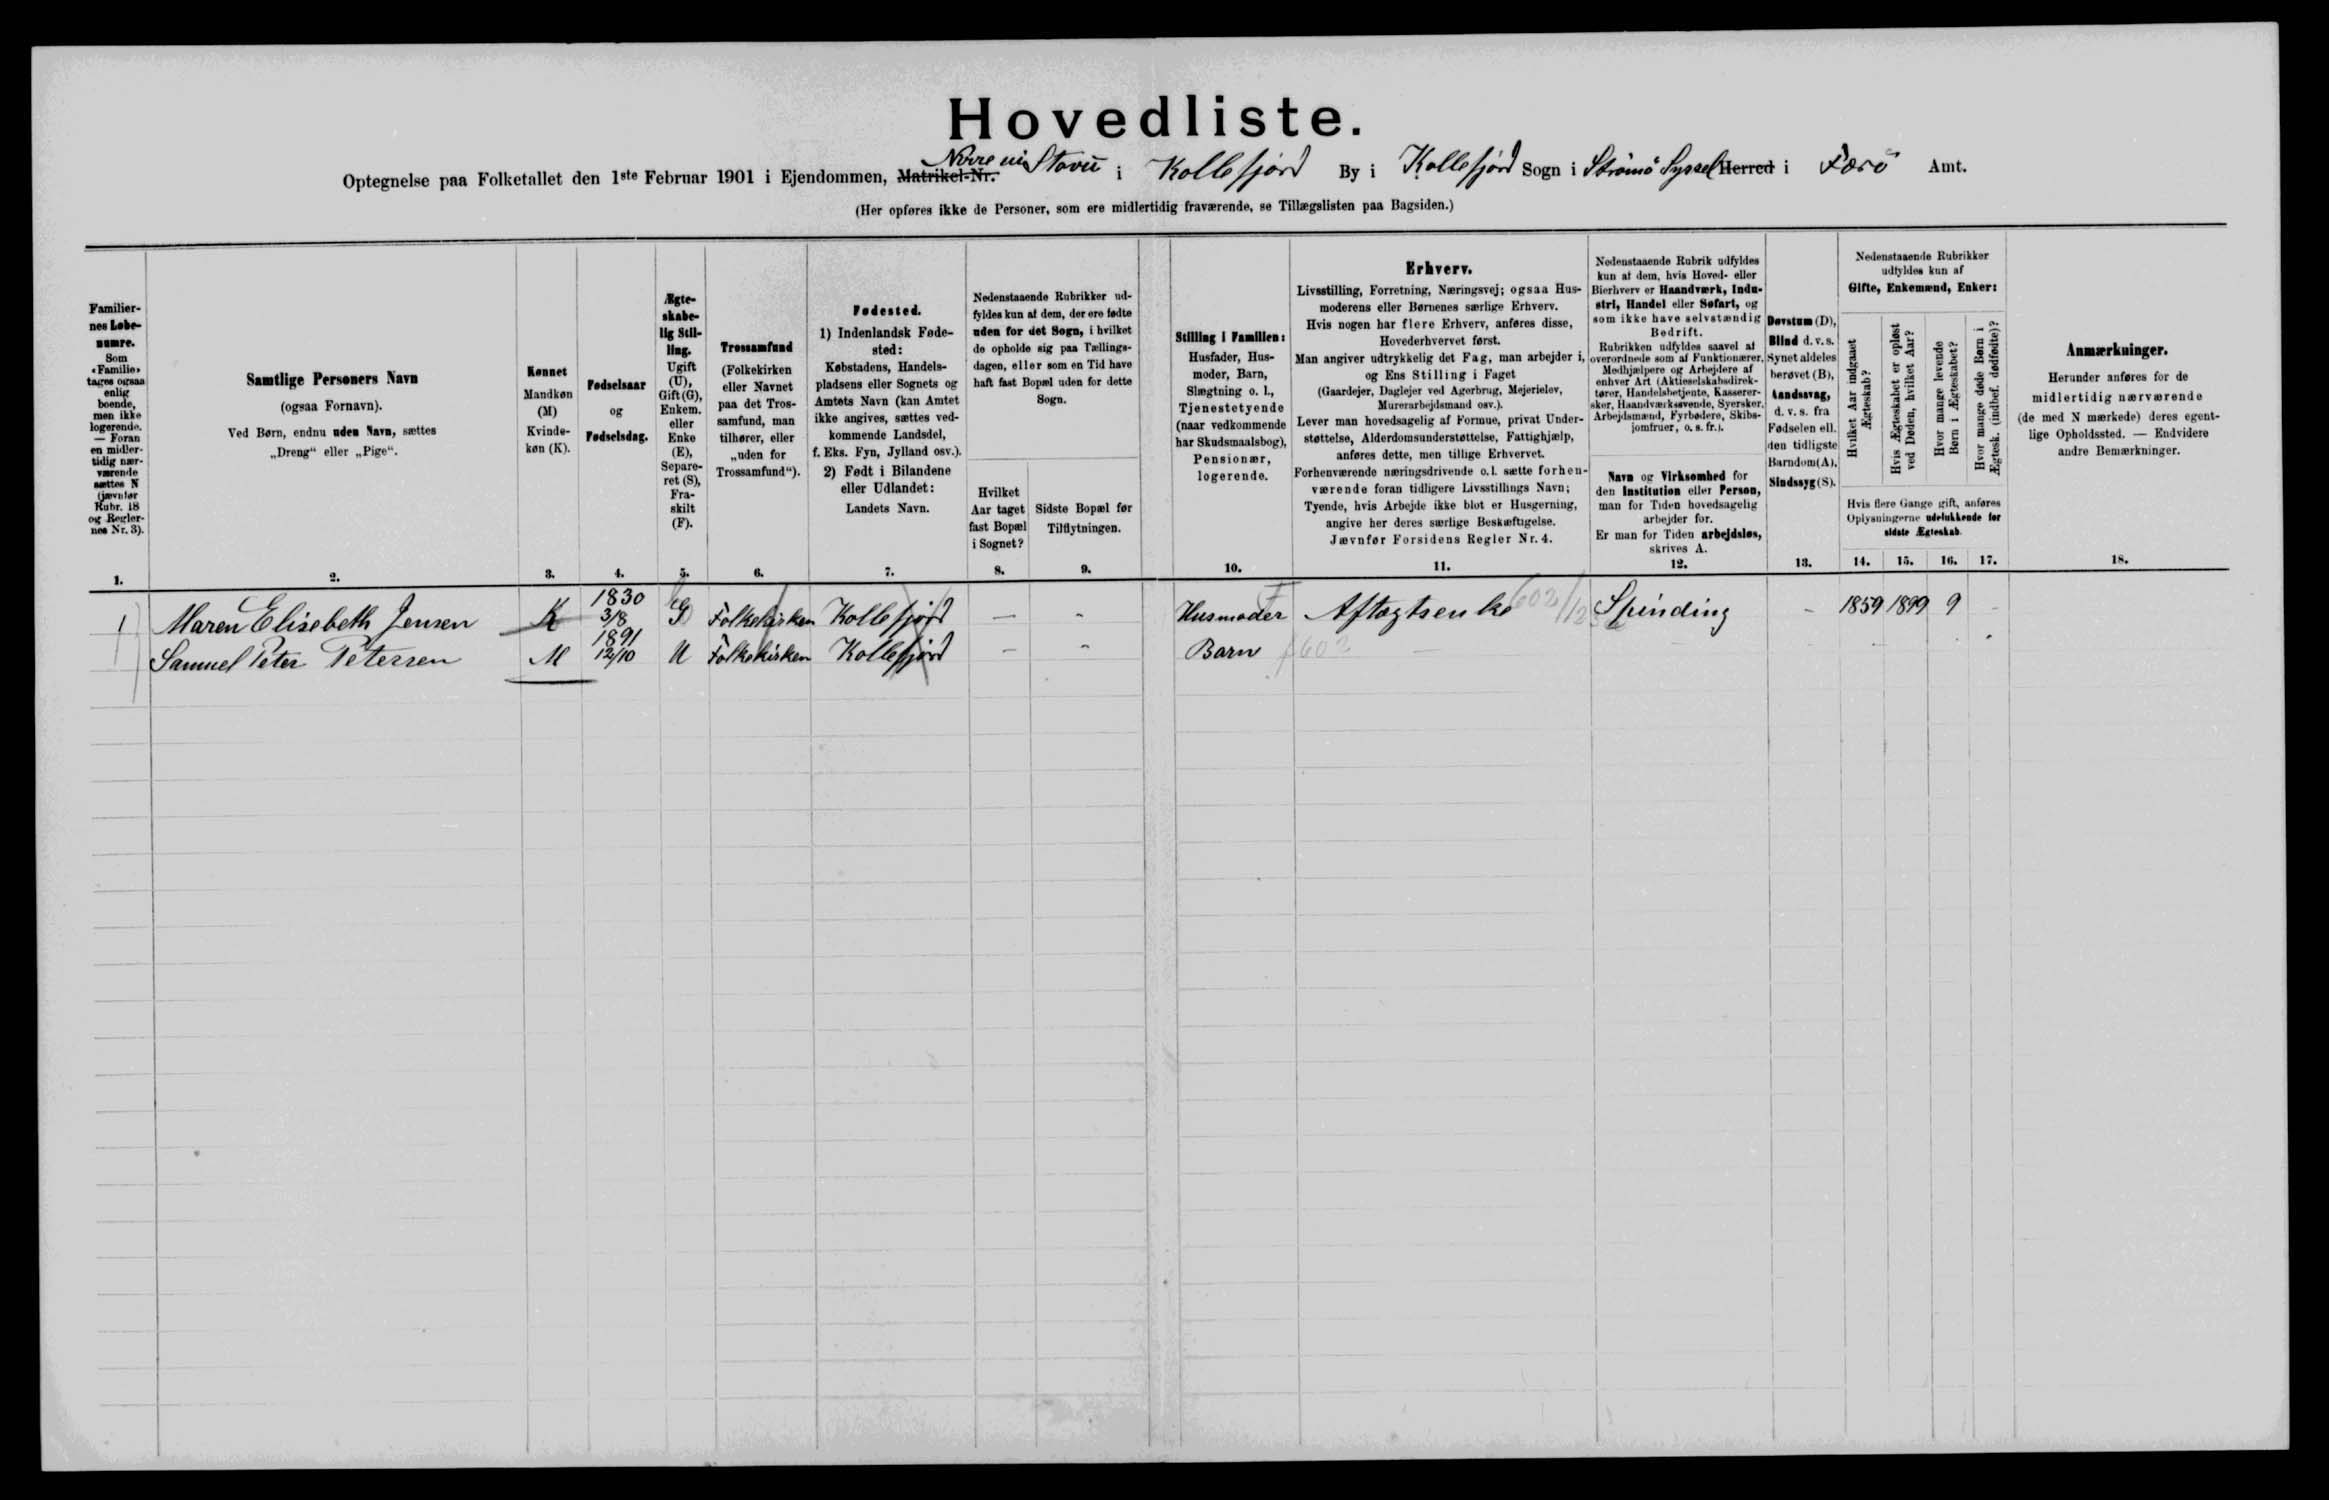 Hovedliste.
Optegnelse paa Folketallet den 1ste Februar 1901 i Ejendommen, Matrikel-Nr. Stovu i Kollefjord By i Kollefjord Sogn i Strömö Syssel Herred i Færö Amt.
(Her opføres ikke de Personer, som ere midlertidig fraværende, se Tillægslisten paa Bagsiden.)
Familier-
nes Løbe-
numre.
Som
«Familie»
tages ogsaa
enlig
boende,
men ikke
logerende.
— Foran
en midler-
tidig nær-
værende
sættes N
(jævnfør
Rubr. 18
og Regler-
nes Nr. 3).
1.
Samtlige Personers Navn
(ogsaa Fornavn).
Ved Børn, endnu uden Navn, sættes
„Dreng“ eller „Pige“.
2.
Kønnet
Mandkøn
(M)
Kvinde-
køn (K).
3.
Fødselsaar
og
Fødselsdag.
4.
Ægte-
skabe-
lig Stil-
ling.
Ugift
(U),
Gift (G),
Enkem.
eller
Enke
(E),
Separe-
ret (S),
Fra-
skilt
(F).
5.
Trossamfund
(Folkekirken
eller Navnet
paa det Tros-
samfund, man
tilhører, eller
„uden for
Trossamfund“).
6.
Fødested.
1) Indenlandsk Føde-
sted:
Købstadens, Handels-
pladsens eller Sognets og
Amtets Navn (kan Amtet
ikke angives, sættes ved-
kommende Landsdel,
f. Eks. Fyn, Jylland osv.).
2) Født i Bilandene
eller Udlandet:
Landets Navn.
7.
Nedenstaaende Rubrikker ud-
fyldes kun af dem, der ere fødte
uden for det Sogn, i hvilket
de opholde sig paa Tællings-
dagen, eller som en Tid have
haft fast Bopæl uden for dette
Sogn.
Hvilket
Aar taget
fast Bopæl
i Sognet?
8.
Sidste Bopæl før
Tilflytningen.
9.
Stilling i Familien:
Husfader, Hus-
moder, Barn,
Slægtning o. l.,
Tjenestetyende
(naar vedkommende
har Skudsmaalsbog),
Pensionær,
logerende.
10.
Erhverv.
Livsstilling, Forretning, Næringsvej; ogsaa Hus-
moderens eller Børnenes særlige Erhverv.
Hvis nogen har flere Erhverv, anføres disse,
Hovederhvervet først.
Man angiver udtrykkelig det Fag, man arbejder i,
og Ens Stilling i Faget
(Gaardejer, Daglejer ved Agerbrug, Mejerielev,
Murerarbejdsmand osv.).
Lever man hovedsagelig af Formue, privat Under-
støttelse, Alderdomsunderstøttelse, Fattighjælp,
anføres dette, men tillige Erhvervet.
Forhenværende næringsdrivende o. l. sætte forhen-
værende foran tidligere Livsstillings Navn;
Tyende, hvis Arbejde ikke blot er Husgerning,
angive her deres særlige Beskæftigelse.
Jævnfør Forsidens Regler Nr. 4.
11.
Nedenstaaende Rubrik udfyldes
kun af dem, hvis Hoved- eller
Bierhverv er Haandværk, Indu-
stri, Handel eller Søfart, og
som ikke have selvstændig
Bedrift.
Rubrikken udfyldes saavel af
overordnede som af Funktionærer,
Medhjælpere og Arbejdere af
enhver Art (Aktieselskabsdirek-
tører, Handelsbetjente, Kasserer-
sker, Haandværkssvende, Syersker,
Arbejdsmænd, Fyrbødere, Skibs-
jomfruer, o. s. fr.).
Navn og Virksomhed for
den Institution eller Person,
man for Tiden hovedsagelig
arbejder for.
Er man for Tiden arbejdsløs,
skrives A.
12.
Døvstum (D),
Blind d. v. s.
Synet aldeles
berøvet (B),
Aandssvag,
d. v. s. fra
Fødselen ell.
den tidligste
Barndom (A),
Sindssyg (S).
13.
Nedenstaaende Rubrikker
udfyldes kun af
Gifte, Enkemænd, Enker:
Hvilket Aar indgaaet
Ægteskab?
Hvis Ægteskabet er opløst
ved Døden, hvilket Aar?
Hvor mange levende
Børn i Ægteskabet?
Hvor mange døde Børn i
Ægtesk. (indbef. dødfødte)?
Hvis flere Gange gift, anføres
Oplysningerne udelukkende for
sidste Ægteskab.
14. 15. 16. 17.
Anmærkninger.
Herunder anføres for de
midlertidig nærværende
(de med N mærkede) deres egent-
lige Opholdssted. — Endvidere
andre Bemærkninger.
18.
1 Maren Elisebeth Jensen K 1830 3/8 G Folkekirken Kollefjord — - Husmoder Aftægtsenke 602 Spinding - 1859 1899 9 -
Samuel Peter Petersen M 1891 12/10 U Folkekirken Kollefjord — - Barn 602 —